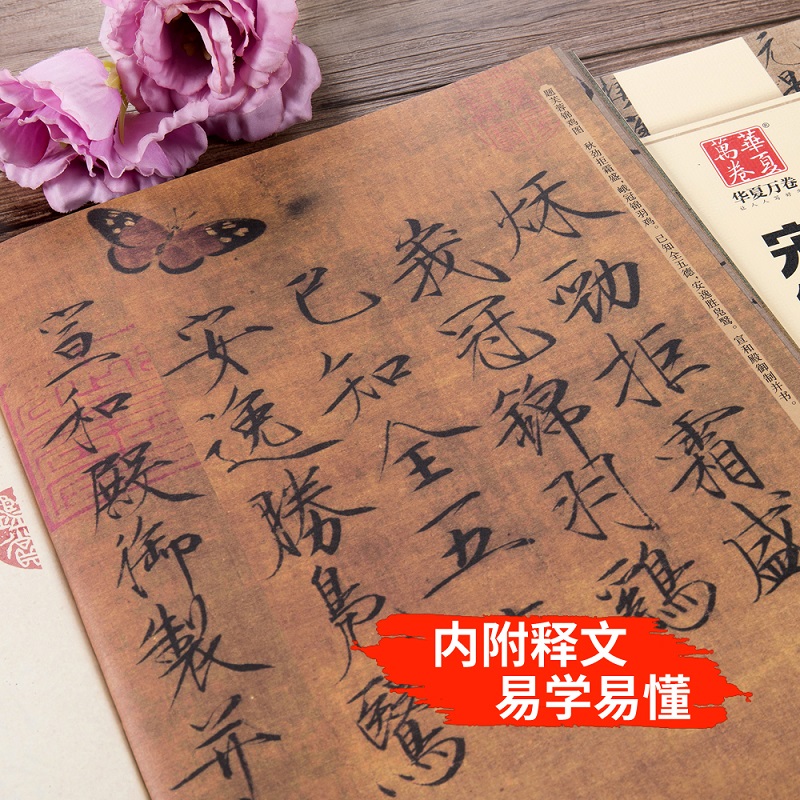 题芙蓉锦鸡图 秋劲拒霜盛,峨冠锦羽鸡。已知全五德,安逸胜凫鹥。宣和殿御制并书。
秌勁拒霜盛
峩冠錦羽鷄
已知全五
安逸勝鳬鷖
宣和殿御製并
華夏萬卷®
华夏万卷
内附释文
易学易懂